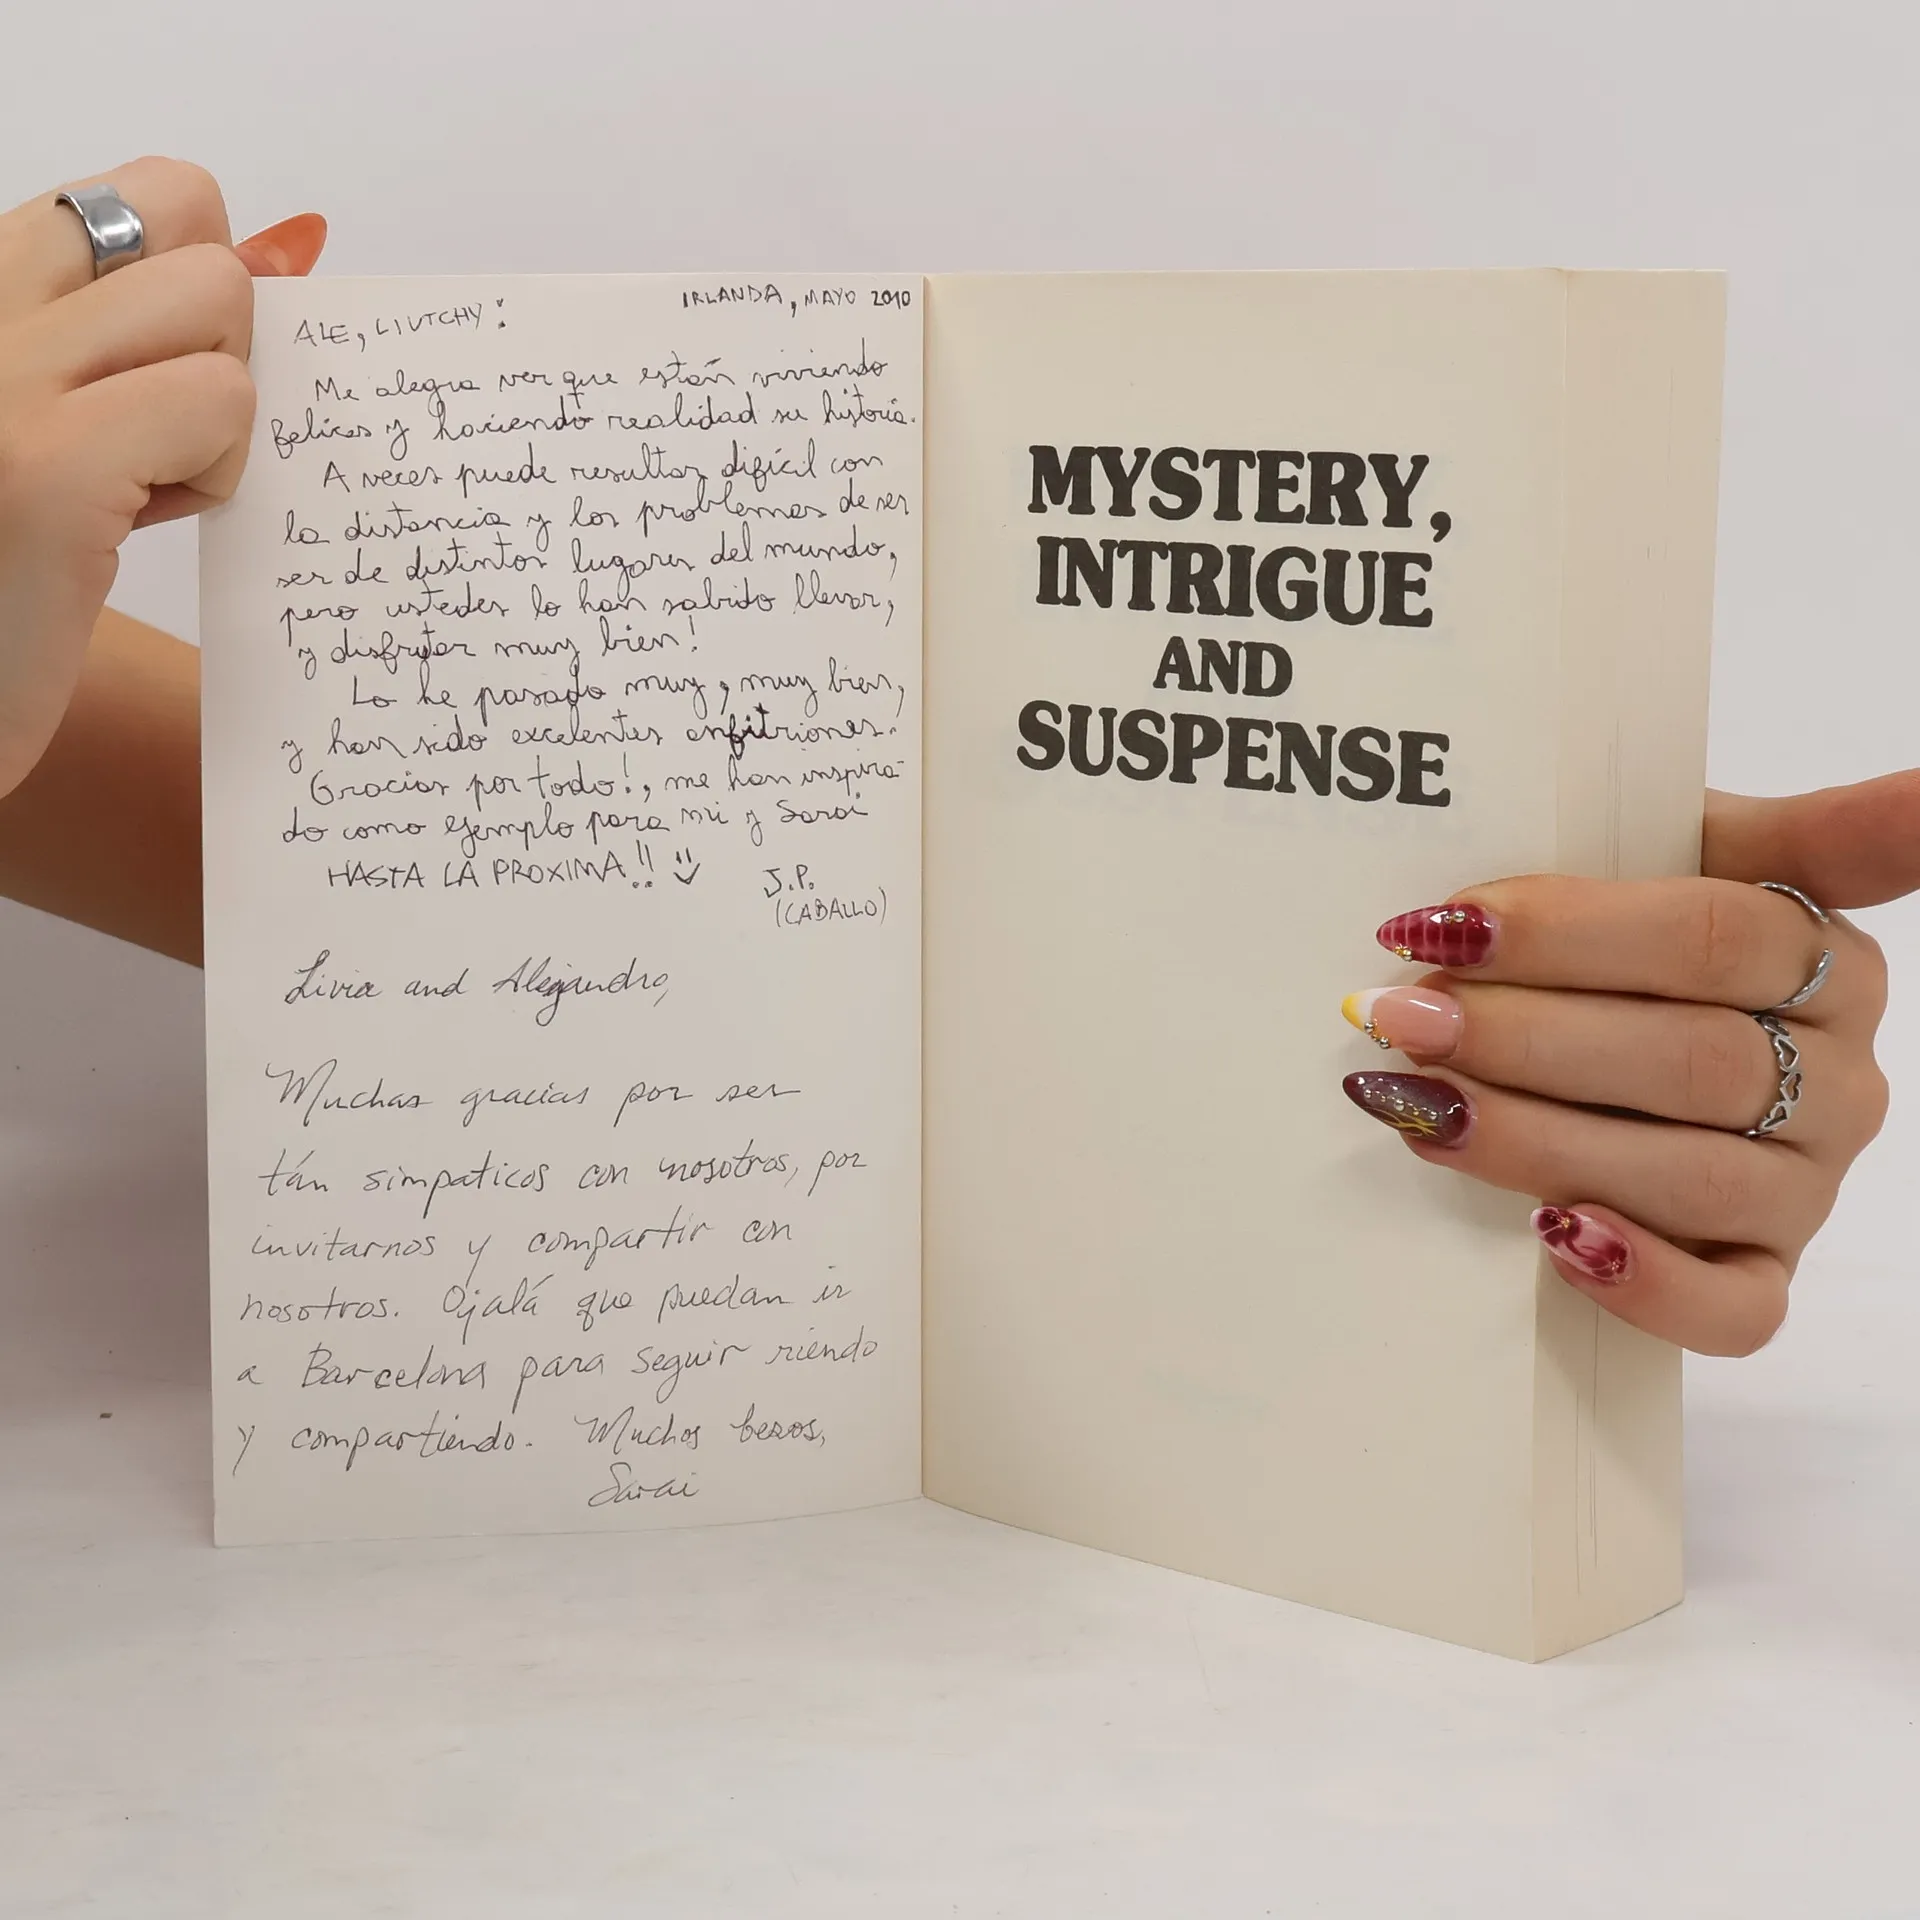 IRLANDA, MAYO 2010
ALE, LIUTCHY:
Me alegra ver que están viviendo
felices y haciendo realidad su historia.
A veces puede resultar dificil con
la distancia y los problemas de ser
ser de distintos lugares del mundo,
pero ustedes lo han sabido llevar,
y disfrutar muy bien!
Lo he pasado muy, muy bien,
y han sido excelentes anfitriones.
Gracias por todo!, me han inspira-
do como ejemplo para mi y Sarai
HASTA LA PROXIMA!! :)
J.P.
(CABALLO)
Livia and Alejandro,
Muchas gracias por ser
tán simpaticos con nosotros, por
invitarnos y compartir con
nosotros. Ojalá que puedan ir
a Barcelona para seguir riendo
y compartiendo. Muchos besos,
Sarai
MYSTERY,
INTRIGUE
AND
SUSPENSE